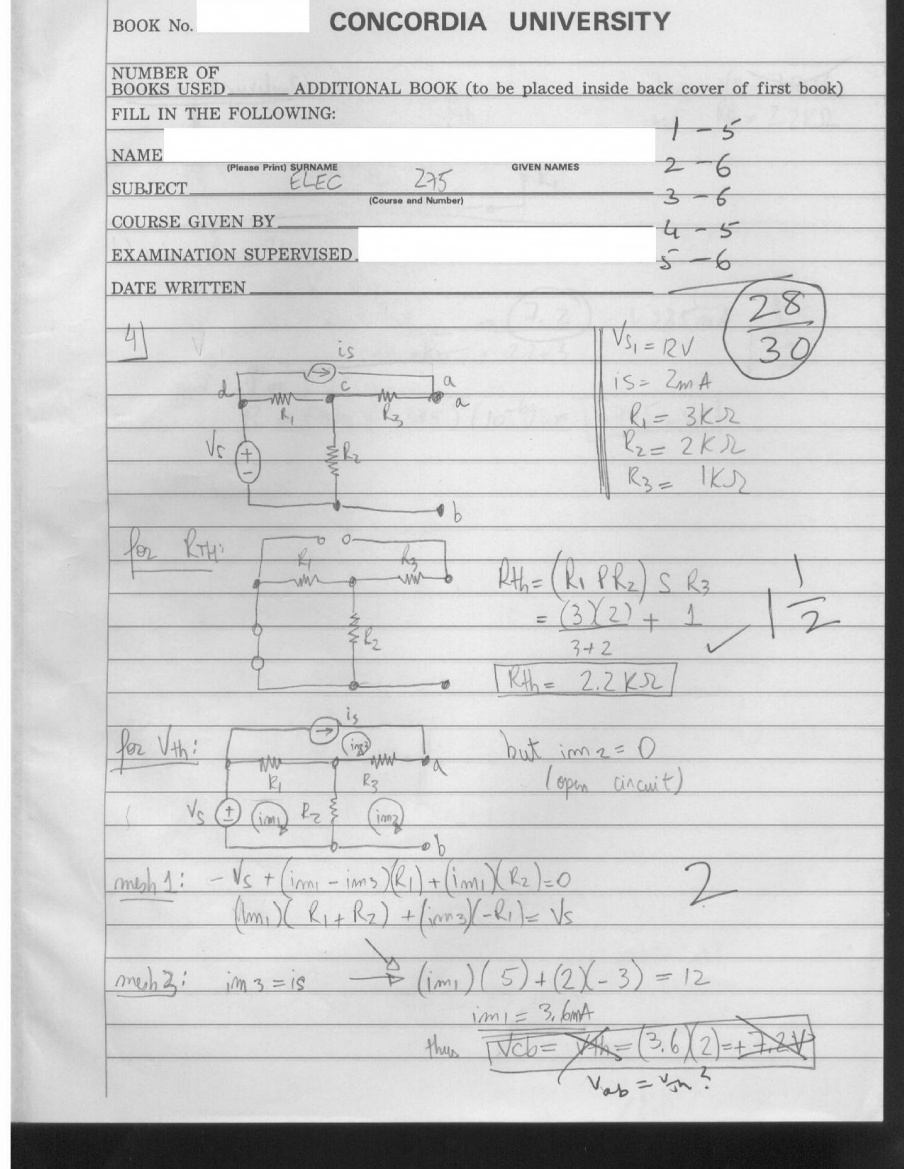 BOOK No. CONCORDIA UNIVERSITY
NUMBER OF
BOOKS USED ADDITIONAL BOOK (to be placed inside back cover of first book)
FILL IN THE FOLLOWING:
1 - 5
NAME
(Please Print) SURNAME GIVEN NAMES
2 - 6
SUBJECT ELEC 275
(Course and Number)
3 - 6
COURSE GIVEN BY
4 - 5
EXAMINATION SUPERVISED
5 - 6
DATE WRITTEN
28/30
4)
is
d c a
a
R1 R3
Vs + -
R2
b
Vs1 = 12V
is = 2mA
R1 = 3KΩ
R2 = 2KΩ
R3 = 1KΩ
for RTH:
R1 R3
R2
Rth = (R1 P R2) S R3
= (3)(2)/3+2 + 1 ✓
1 1/2
Rth = 2.2KΩ
for Vth:
is
im3
R1 R3 a
Vs ± im1 R2 im2
b
but im2 = 0
(open circuit)
mesh 1: -Vs + (im1 - im3)(R1) + (im1)(R2) = 0
2
(im1)(R1 + R2) + (im3)(-R1) = Vs
mesh 3: im3 = is → (im1)(5) + (2)(-3) = 12
im1 = 3.6mA
thus Vcb = Vth = (3.6)(2) = +7.2V
Vab = Vth ?